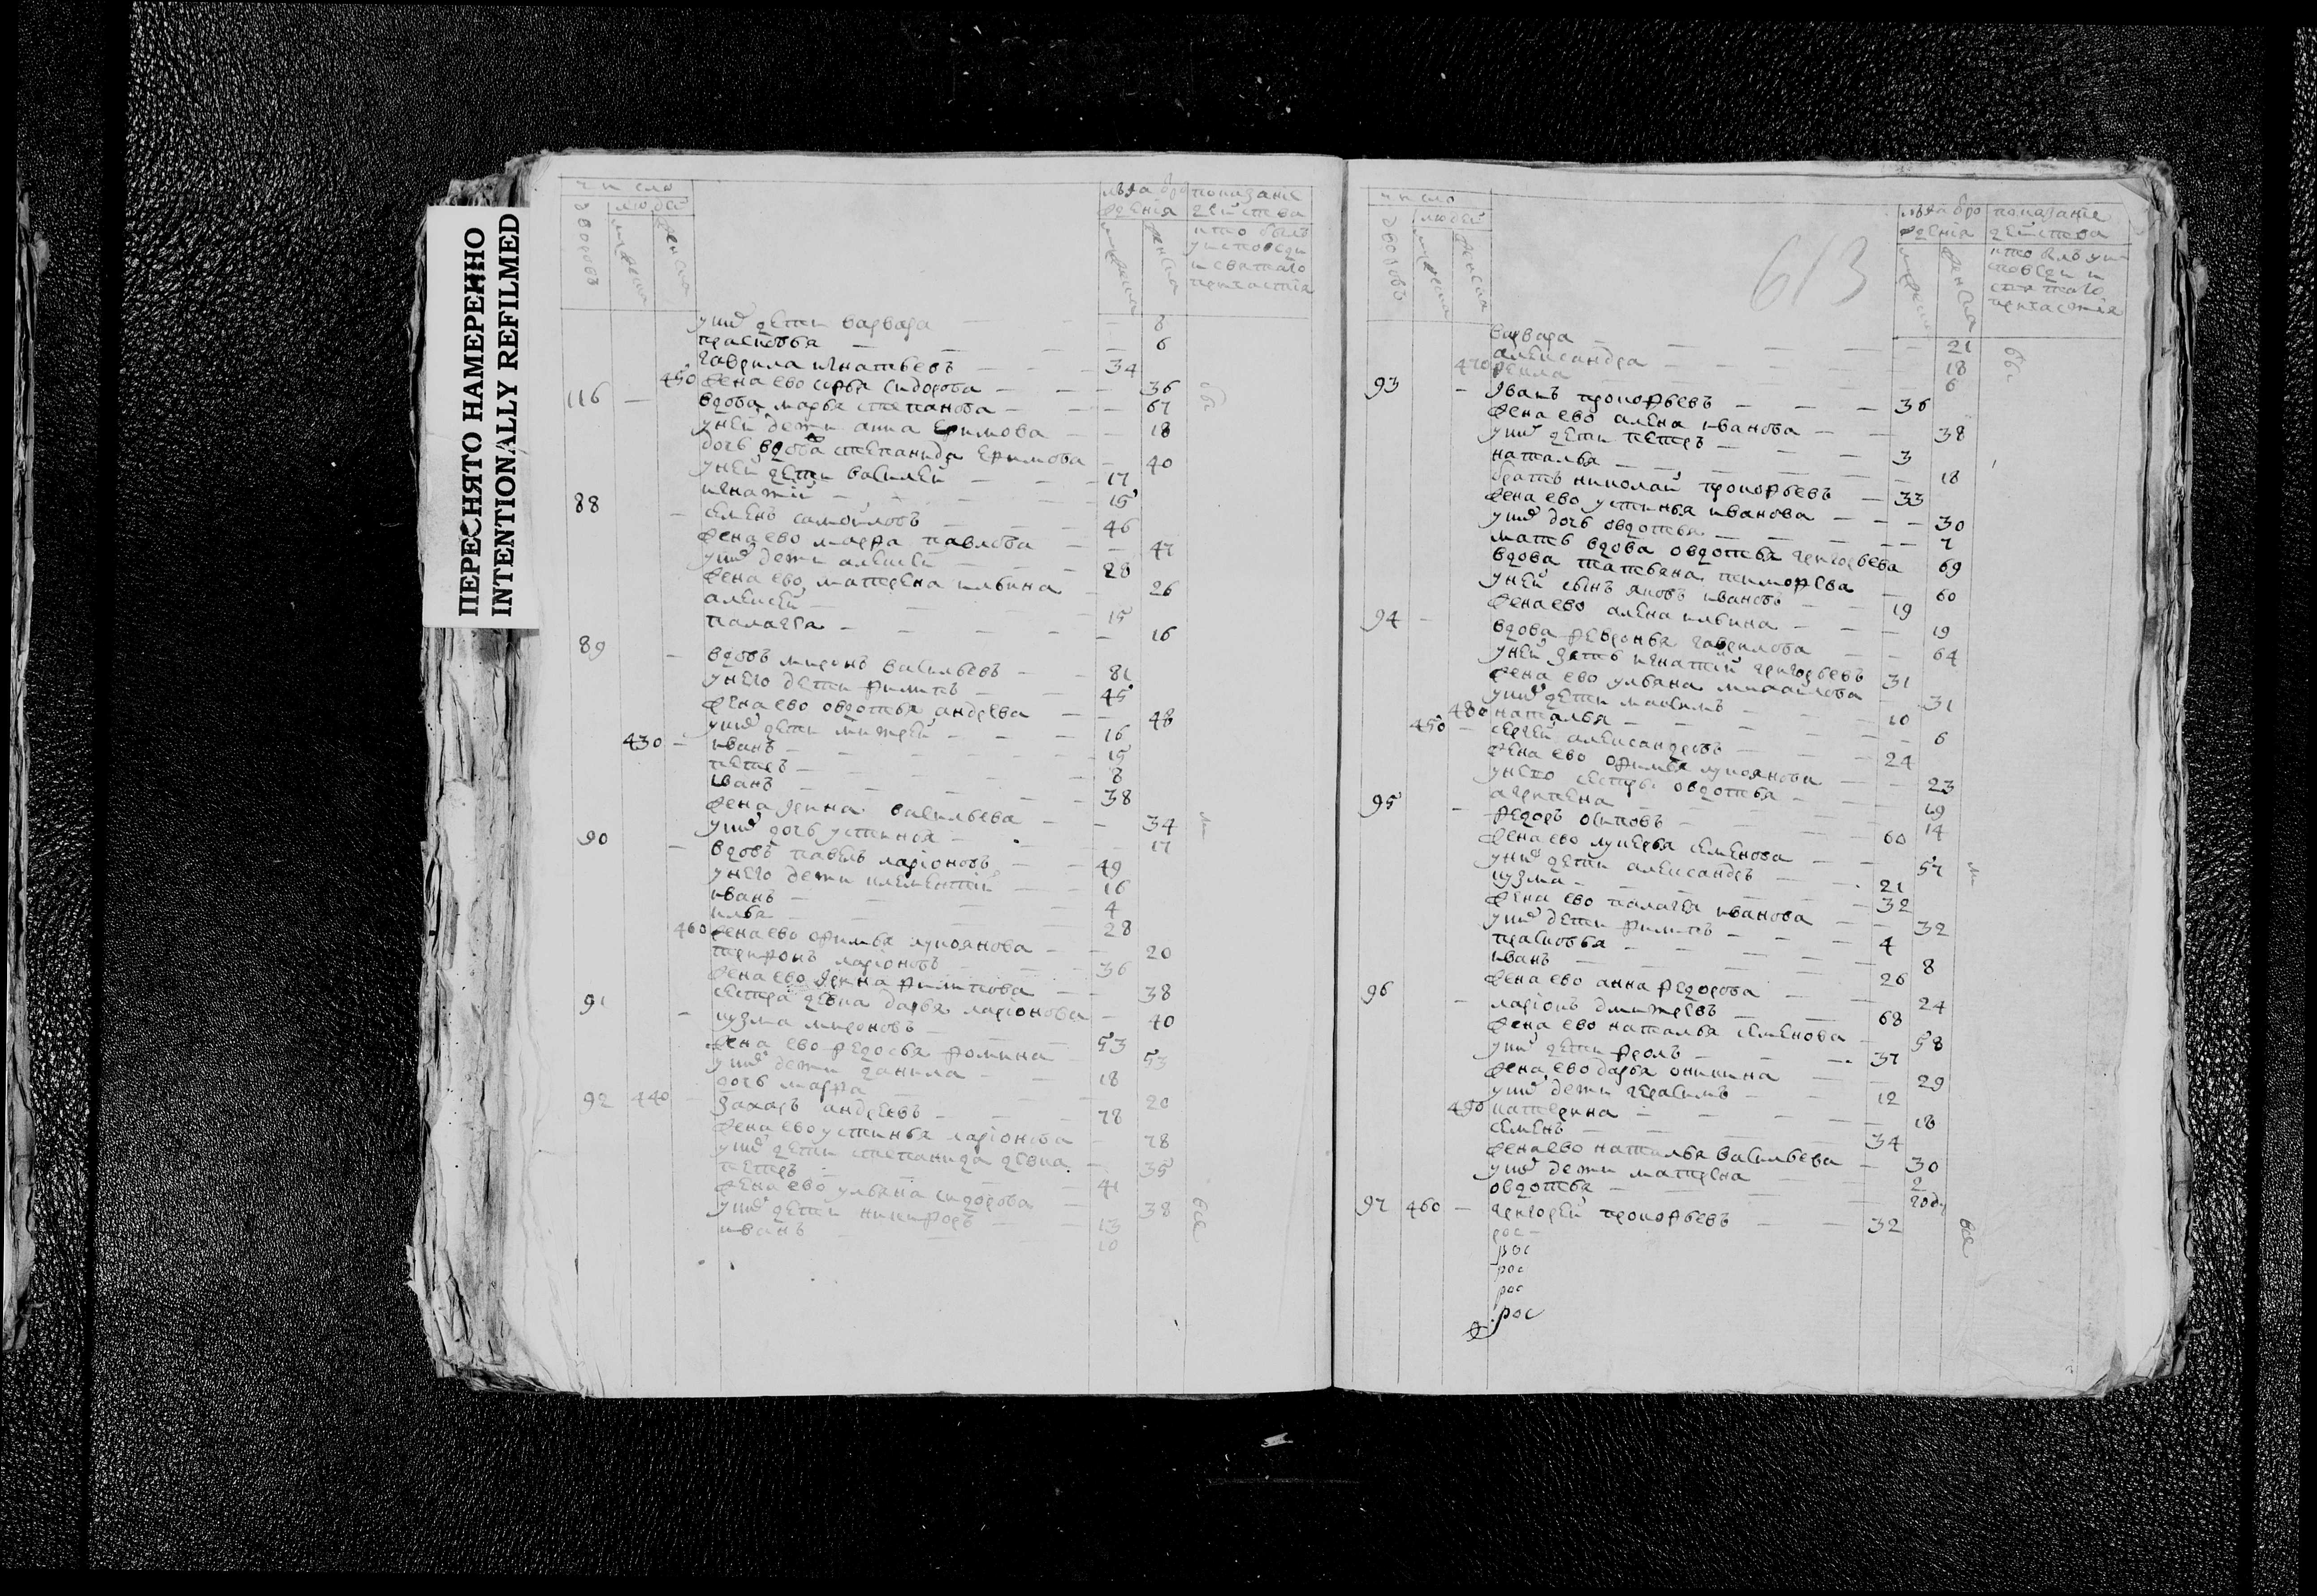 ПЕРЕСНЯТО НАМЕРЕННО
INTENTIONALLY REFILMED
число
людей
дворовъ
показание
действа
кто былъ
у исповеди
и святаго
причастия
уних дети варвара — — 8
прасковья — — 6
гаврила игнатьевъ — — 34
450 жена ево софья сидорова — — 36
116 — вдова марья степанова — — 67
уней дети анна ефимова — — 18
дочь вдова степанида ефимова — 40
уней дети василей — — 17
игнатій — — 15
88 — семенъ самойловъ — — 46
жена ево марфа павлова — — 47
уних дети алексей — — 28
жена ево матрена ильина — 26
алексей — — 15
палагея — — 16
89 — вдовъ миронъ васильевъ — — 81
унего дети филипъ — — 45
жена ево овдотья андрева — — 48
уних дети митрей — — 16
430 — иванъ — — 15
петръ — — 8
иванъ — — 38
жена ирина васильева — — 34
уних дочь устинья — — 17
90 — вдовъ павелъ ларіоновъ — — 49
унего дети клементій — — 16
иванъ — — 4
илья — — 28
460 жена ево офимья лукоянова — — 20
трифонъ ларіоновъ — — 36
жена ево ирина филипова — — 38
сестра девка дарья ларіонова — 40
91 — кузма мироновъ — — 53
жена ево федосья фомина — 53
уних дети данила — — 18
дочь марфа — — 20
92 440 — захаръ андреевъ — — 78
жена ево устинья ларіонова — 78
уних дети степанида девка — 35
петръ — — 41
жена ево ульяна сидорова — 38
уних дети никифоръ — — 13
иванъ — — 10
все
613
число
людей
дворовъ
показаніе
действа
кто былъ уи
споведи и
святаго
причастія
варвара — — 21
александра — — 18
470 фекла — — 6
93 — иванъ прокофьевъ — — 36
жена ево алена иванова — — 38
уних дети петръ — — 3
наталья — — 18
братъ николай прокофьевъ — 33
жена ево устинья иванова — — 30
уних дочь овдотья — — 7
мать вдова овдотья григорьева 69
вдова татьяна тимофева — 60
уней сынъ яковъ ивановъ — — 19
жена ево алена ильина — — 19
94 — вдова февронья гаврилова — — 64
уней зять игнатій григорьевъ 31
жена ево ульяна михайлова — 31
уних дети максимъ — — 10
480 наталья — — 6
450 — сергей александровъ — — 24
жена ево офимья лукоянова — 23
унего сестры овдотья — — 19
агрипена — — 14
95 — федоръ осиповъ — — 60
жена ево лукерья семенова — — 57
уних дети александръ — — 21
кузма — — 32
жена ево палагея иванова — — 32
уних дети филипъ — — 4
прасковья — — 8
иванъ — — 26
жена ево анна федорова — — 24
96 — ларіонъ дмитревъ — — 68
жена ево наталья семенова — 58
уних дети фролъ — — 37
жена ево дарья оникина — — 29
уних дети герасимъ — — 12
490 катерина — — 18
семенъ — — 34
жена ево наталья васильева — 30
уних дети матрена — — 2
овдотья — — году
97 460 — григорей прокофьевъ — — 32
все
рос
рос
рос
рос
рос